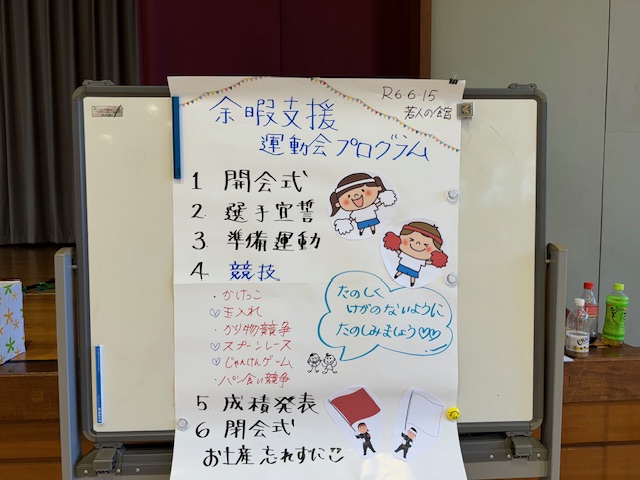 R6.6.15
若人の館
余暇支援
運動会プログラム
1 開会式
2 選手宣誓
3 準備運動
4 競技
・かけっこ
♡玉入れ
・かり物競争
♡スプーンレース
♡じゃんけんゲーム
・パン食い競争
たのしく
けがのないように
たのしみましょう♡♡
5 成積発表
6 閉会式
お土産忘れずに